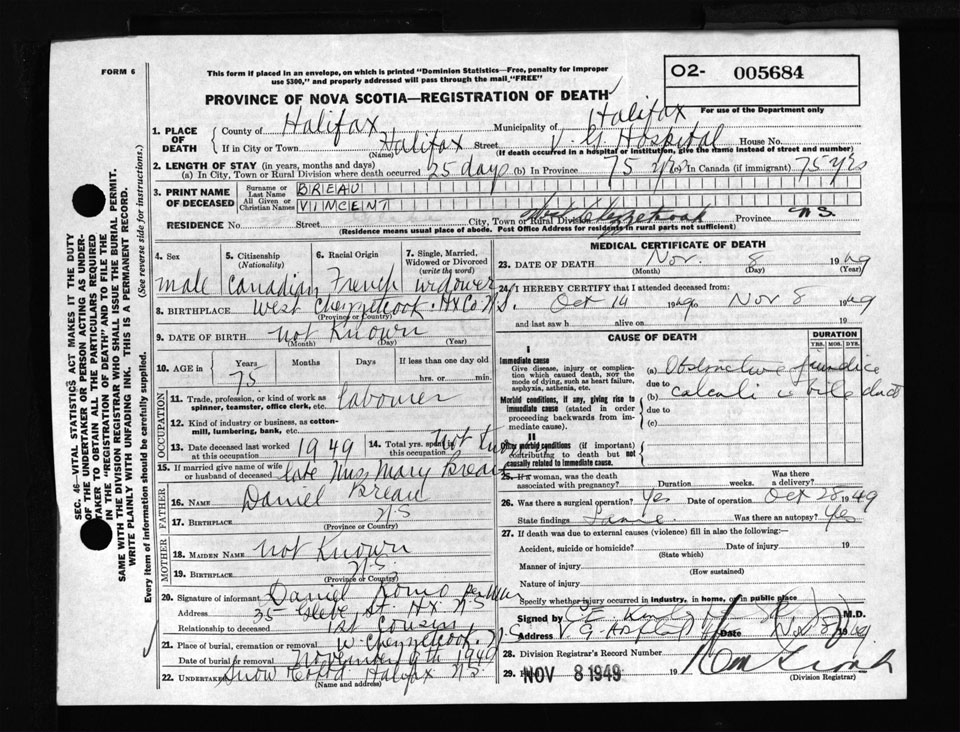 FORM 6
This form if placed in an envelope, on which is printed "Dominion Statistics—Free, penalty for improper
use $300," and properly addressed will pass through the mail "FREE"
O2- 005684
PROVINCE OF NOVA SCOTIA—REGISTRATION OF DEATH
For use of the Department only
1. PLACE OF DEATH
County of Halifax Municipality of Halifax
If in City or Town Halifax Street V. G. Hospital House No.
(Name) (If death occurred in a hospital or institution, give the name instead of street and number)
2. LENGTH OF STAY (in years, months and days)
(a) In City, Town or Rural Division where death occurred 25 days (b) In Province 75 yrs (c) In Canada (if immigrant) 75 yrs
3. PRINT NAME OF DECEASED
Surname or Last Name BREAU
All Given or Christian Names VIINCENT
RESIDENCE No. Street City, Town or Rural Division West Chezzetcook Province N.S.
(Residence means usual place of abode. Post Office Address for residents in rural parts not sufficient)
4. Sex male
5. Citizenship (Nationality) Canadian
6. Racial Origin French
7. Single, Married, Widowed or Divorced (write the word) widower
8. BIRTHPLACE West Chezzetcook. Hx Co. N.S.
(Province or Country)
9. DATE OF BIRTH not Known
(Month) (Day) (Year)
10. AGE in Years Months Days If less than one day old
75 hrs. or min.
OCCUPATION
11. Trade, profession, or kind of work as spinner, teamster, office clerk, etc. labourer
12. Kind of industry or business, as cotton-mill, lumbering, bank, etc.
13. Date deceased last worked at this occupation 1949
14. Total yrs. spent in this occupation Not Known
15. If married give name of wife or husband of deceased late Miss Mary Breau
FATHER
16. NAME Daniel Breau
17. BIRTHPLACE N.S
(Province or Country)
MOTHER
18. MAIDEN NAME not Known
19. BIRTHPLACE N.S.
(Province or Country)
20. Signature of informant Daniel Romo
Address 35 Glebe St. Hx N.S
Relationship to deceased 1st Cousins
21. Place of burial, cremation or removal W. Chezzetcook. N.S
Date of burial or removal November 9th 1949
22. Undertaker Snow Halifax N.S.
(Name and address)
MEDICAL CERTIFICATE OF DEATH
23. DATE OF DEATH Nov. 8 1949
(Month) (Day) (Year)
24. I HEREBY CERTIFY that I attended deceased from:
Oct 14 1949 to Nov 8 1949
and last saw h alive on 19
CAUSE OF DEATH
DURATION
YRS. MOS. DYS.
I
Immediate cause
Give disease, injury or complication which caused death, NOT the mode of dying, such as heart failure, asphyxia, asthenia, etc.
(a) Obstructive jaundice
due to
Morbid conditions, if any, giving rise to immediate cause (stated in order proceeding backwards from immediate cause).
(b) calculi c bile duct
due to
(c)
II
Other morbid conditions (if important) contributing to death but not causally related to immediate cause.
25. If a woman, was the death associated with pregnancy? Duration weeks. Was there a delivery?
26. Was there a surgical operation? Yes Date of operation Oct 28 1949
State findings Same. Was there an autopsy? Yes
27. If death was due to external causes (violence) fill in also the following:—
Accident, suicide or homicide? Date of injury 19
(State which)
Manner of injury
(How sustained)
Nature of injury
Specify whether injury occurred in industry, in home, or in public place
Signed by M.D.
Address V G Hospital Date Nov 8 1949
28. Division Registrar's Record Number
29. NOV 8 1949 19
(Division Registrar)
SEC. 46—VITAL STATISTICS ACT MAKES IT THE DUTY
OF THE UNDERTAKER OR PERSON ACTING AS UNDERTAKER
TO OBTAIN ALL THE PARTICULARS REQUIRED
IN THE "REGISTRATION OF DEATH" AND TO FILE THE
SAME WITH THE DIVISION REGISTRAR WHO SHALL ISSUE THE BURIAL PERMIT.
WRITE PLAINLY WITH UNFADING INK. THIS IS A PERMANENT RECORD.
Every item of information should be carefully supplied. (See reverse side for instructions.)